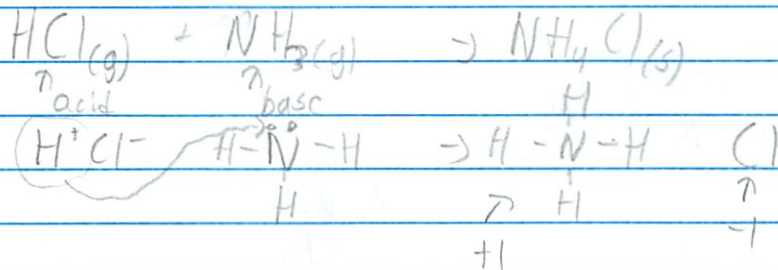 HCl(g) + NH3(g) → NH4Cl(s)
↑ acid ↑ base
H
H+ Cl- H-N-H → H-N-H Cl
H ↑ H ↑
+1 -1